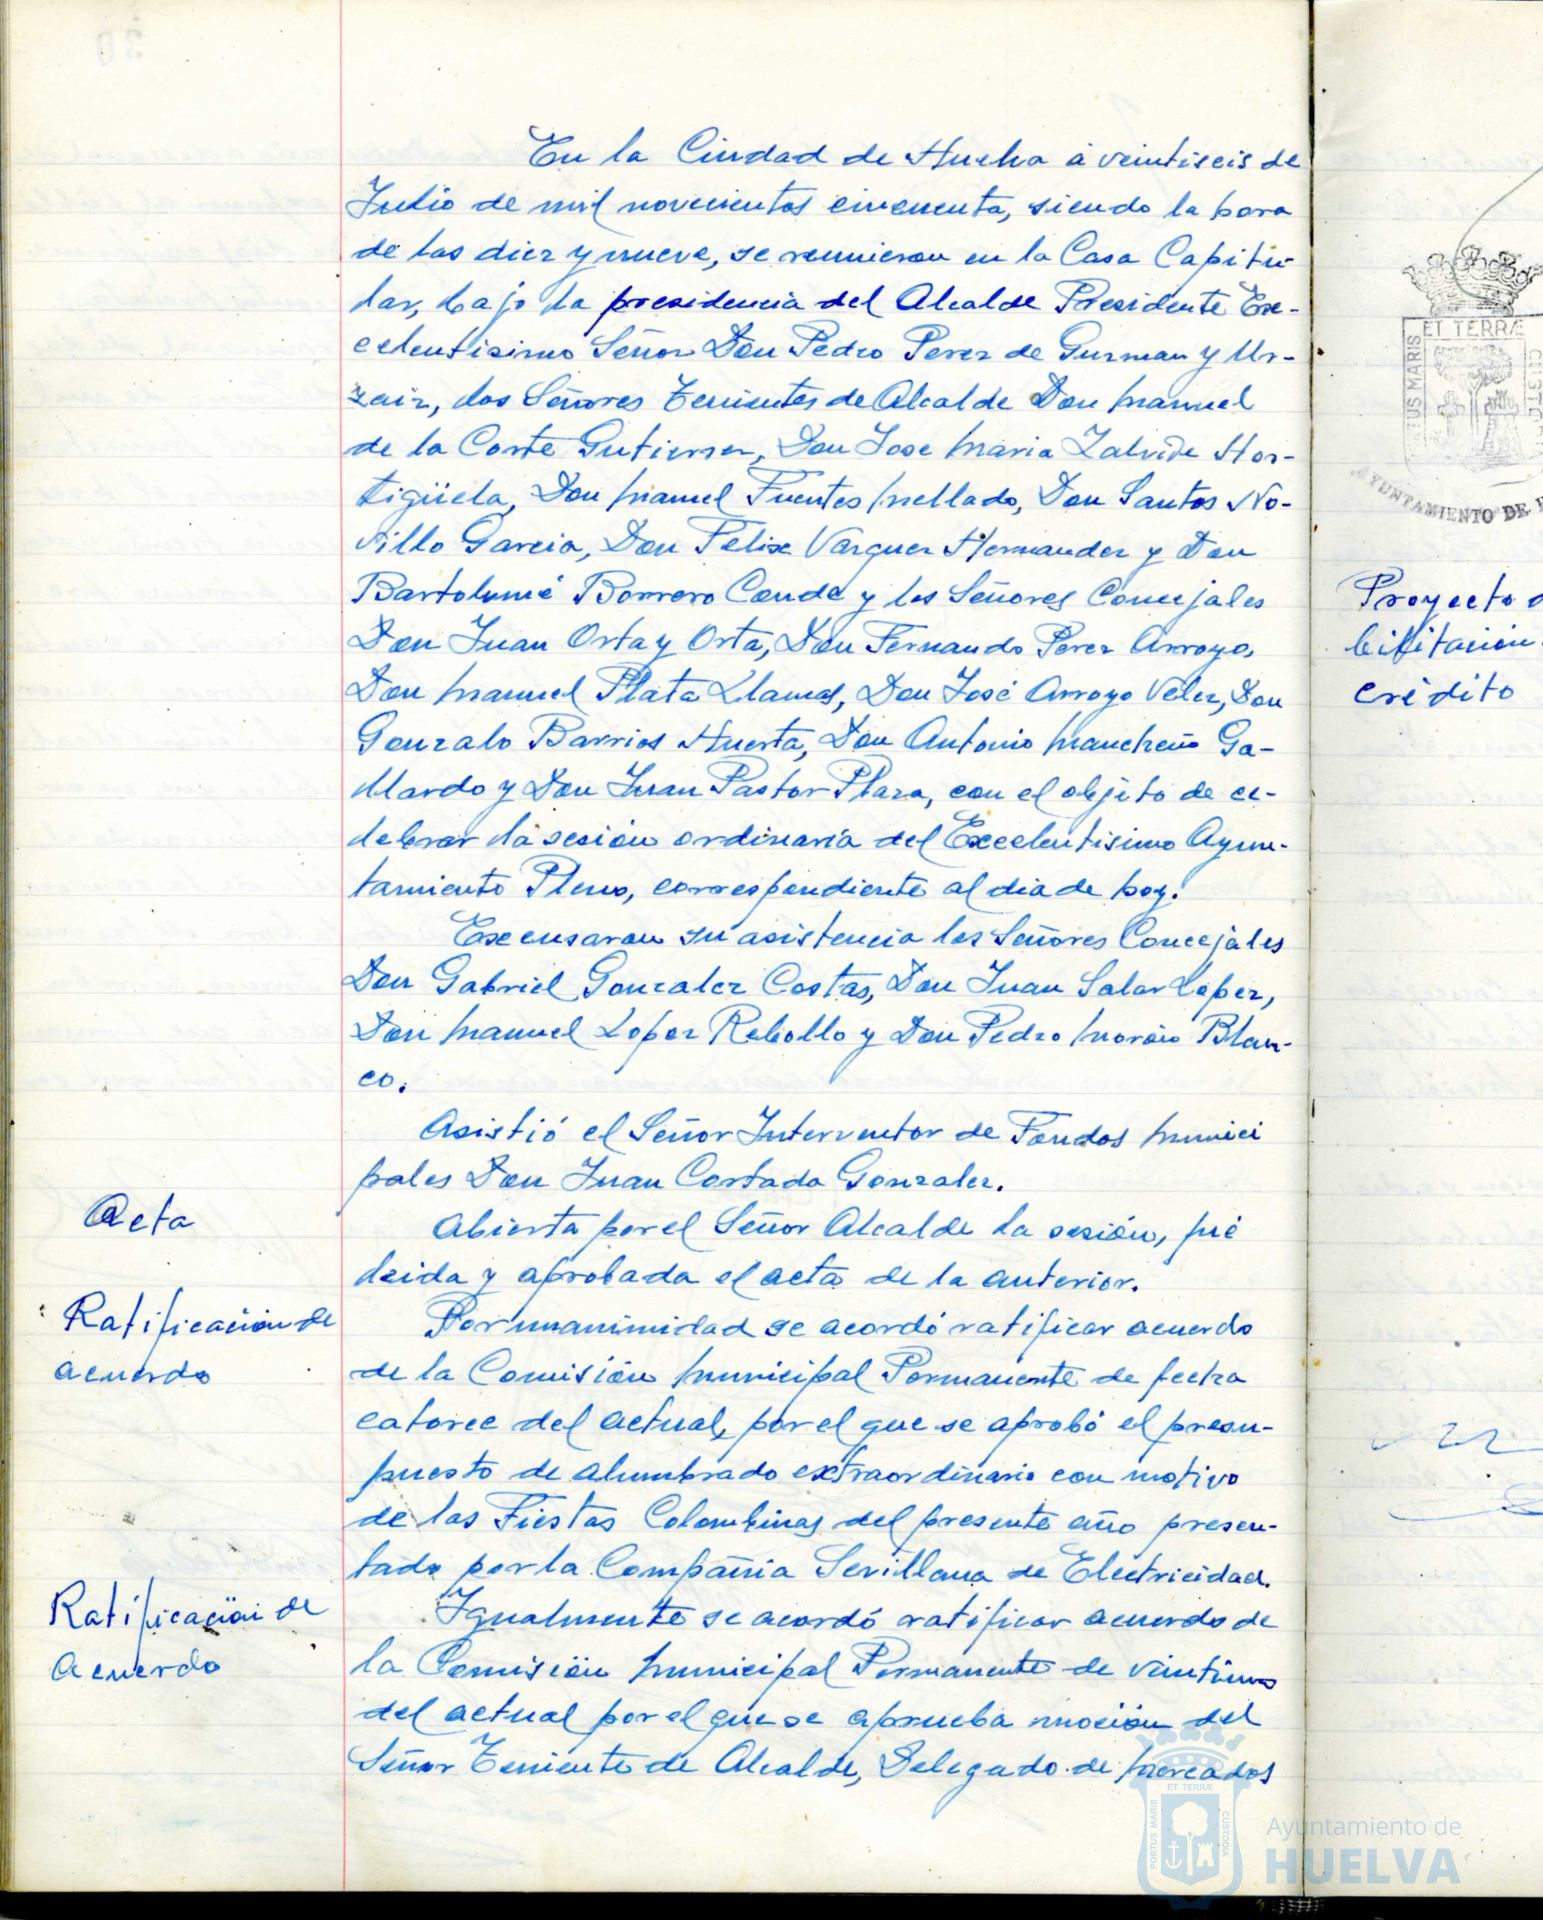 En la Ciudad de Huelva á veintiseis de
Julio de mil novecientos cincuenta, siendo la hora
de las diez y nueve, se reunieron en la Casa Capitu-
lar, bajo la presidencia del Alcalde Presidente Ex-
celentisimo Señor Don Pedro Perez de Guzman y Ur-
zaiz, los Señores Tenientes de Alcalde Don Manuel
de la Corte Gutierrez, Don Jose Maria Zalvide Hor-
tigüela, Don Manuel Fuentes Mellado, Don Santos No-
villo Garcia, Don Felix Vazquez Hernandez y Don
Bartolomé Borrero Conde y los Señores Concejales
Don Juan Orta y Orta, Don Fernando Perez Arroyo,
Don Manuel Plata Llamas, Don José Arroyo Velez, Don
Gonzalo Barrios Huerta, Don Antonio Mancheño Ga-
llardo y Don Juan Pastor Plaza, con el objeto de ce-
lebrar la sesión ordinaria del Excelentisimo Ayun-
tamiento Pleno, correspondiente al dia de hoy.
Excusaron su asistencia los Señores Concejales
Don Gabriel Gonzalez Costas, Don Juan Salar Lopez,
Don Manuel Lopez Rebollo y Don Pedro Morón Blan-
co.
Asistió el Señor Interventor de Fondos Munici
pales Don Juan Cortada Gonzalez.
Acta
Abierta por el Señor Alcalde la sesión, fué
leida y aprobada el acta de la anterior.
Ratificación de
acuerdo
Por unanimidad se acordó ratificar acuerdo
de la Comisión Municipal Permanente de fecha
catorce del actual, por el que se aprobó el presu-
puesto de alumbrado extraordinario con motivo
de las Fiestas Colombinas del presente año presen-
tado por la Compañia Sevillana de Electricidad.
Ratificación de
Acuerdo
Igualmente se acordó ratificar acuerdo de
la Comisión Municipal Permanente de veintiuno
del actual por el que se aprueba moción del
Señor Teniente de Alcalde, Delegado de Mercados
ET TERRÆ
TUS MARIS
AYUNTAMIENTO DE
Proyecto
bilitación
crédito
PORTUS MARIS
ET TERRÆ
CUSTODIA
Ayuntamiento de
HUELVA